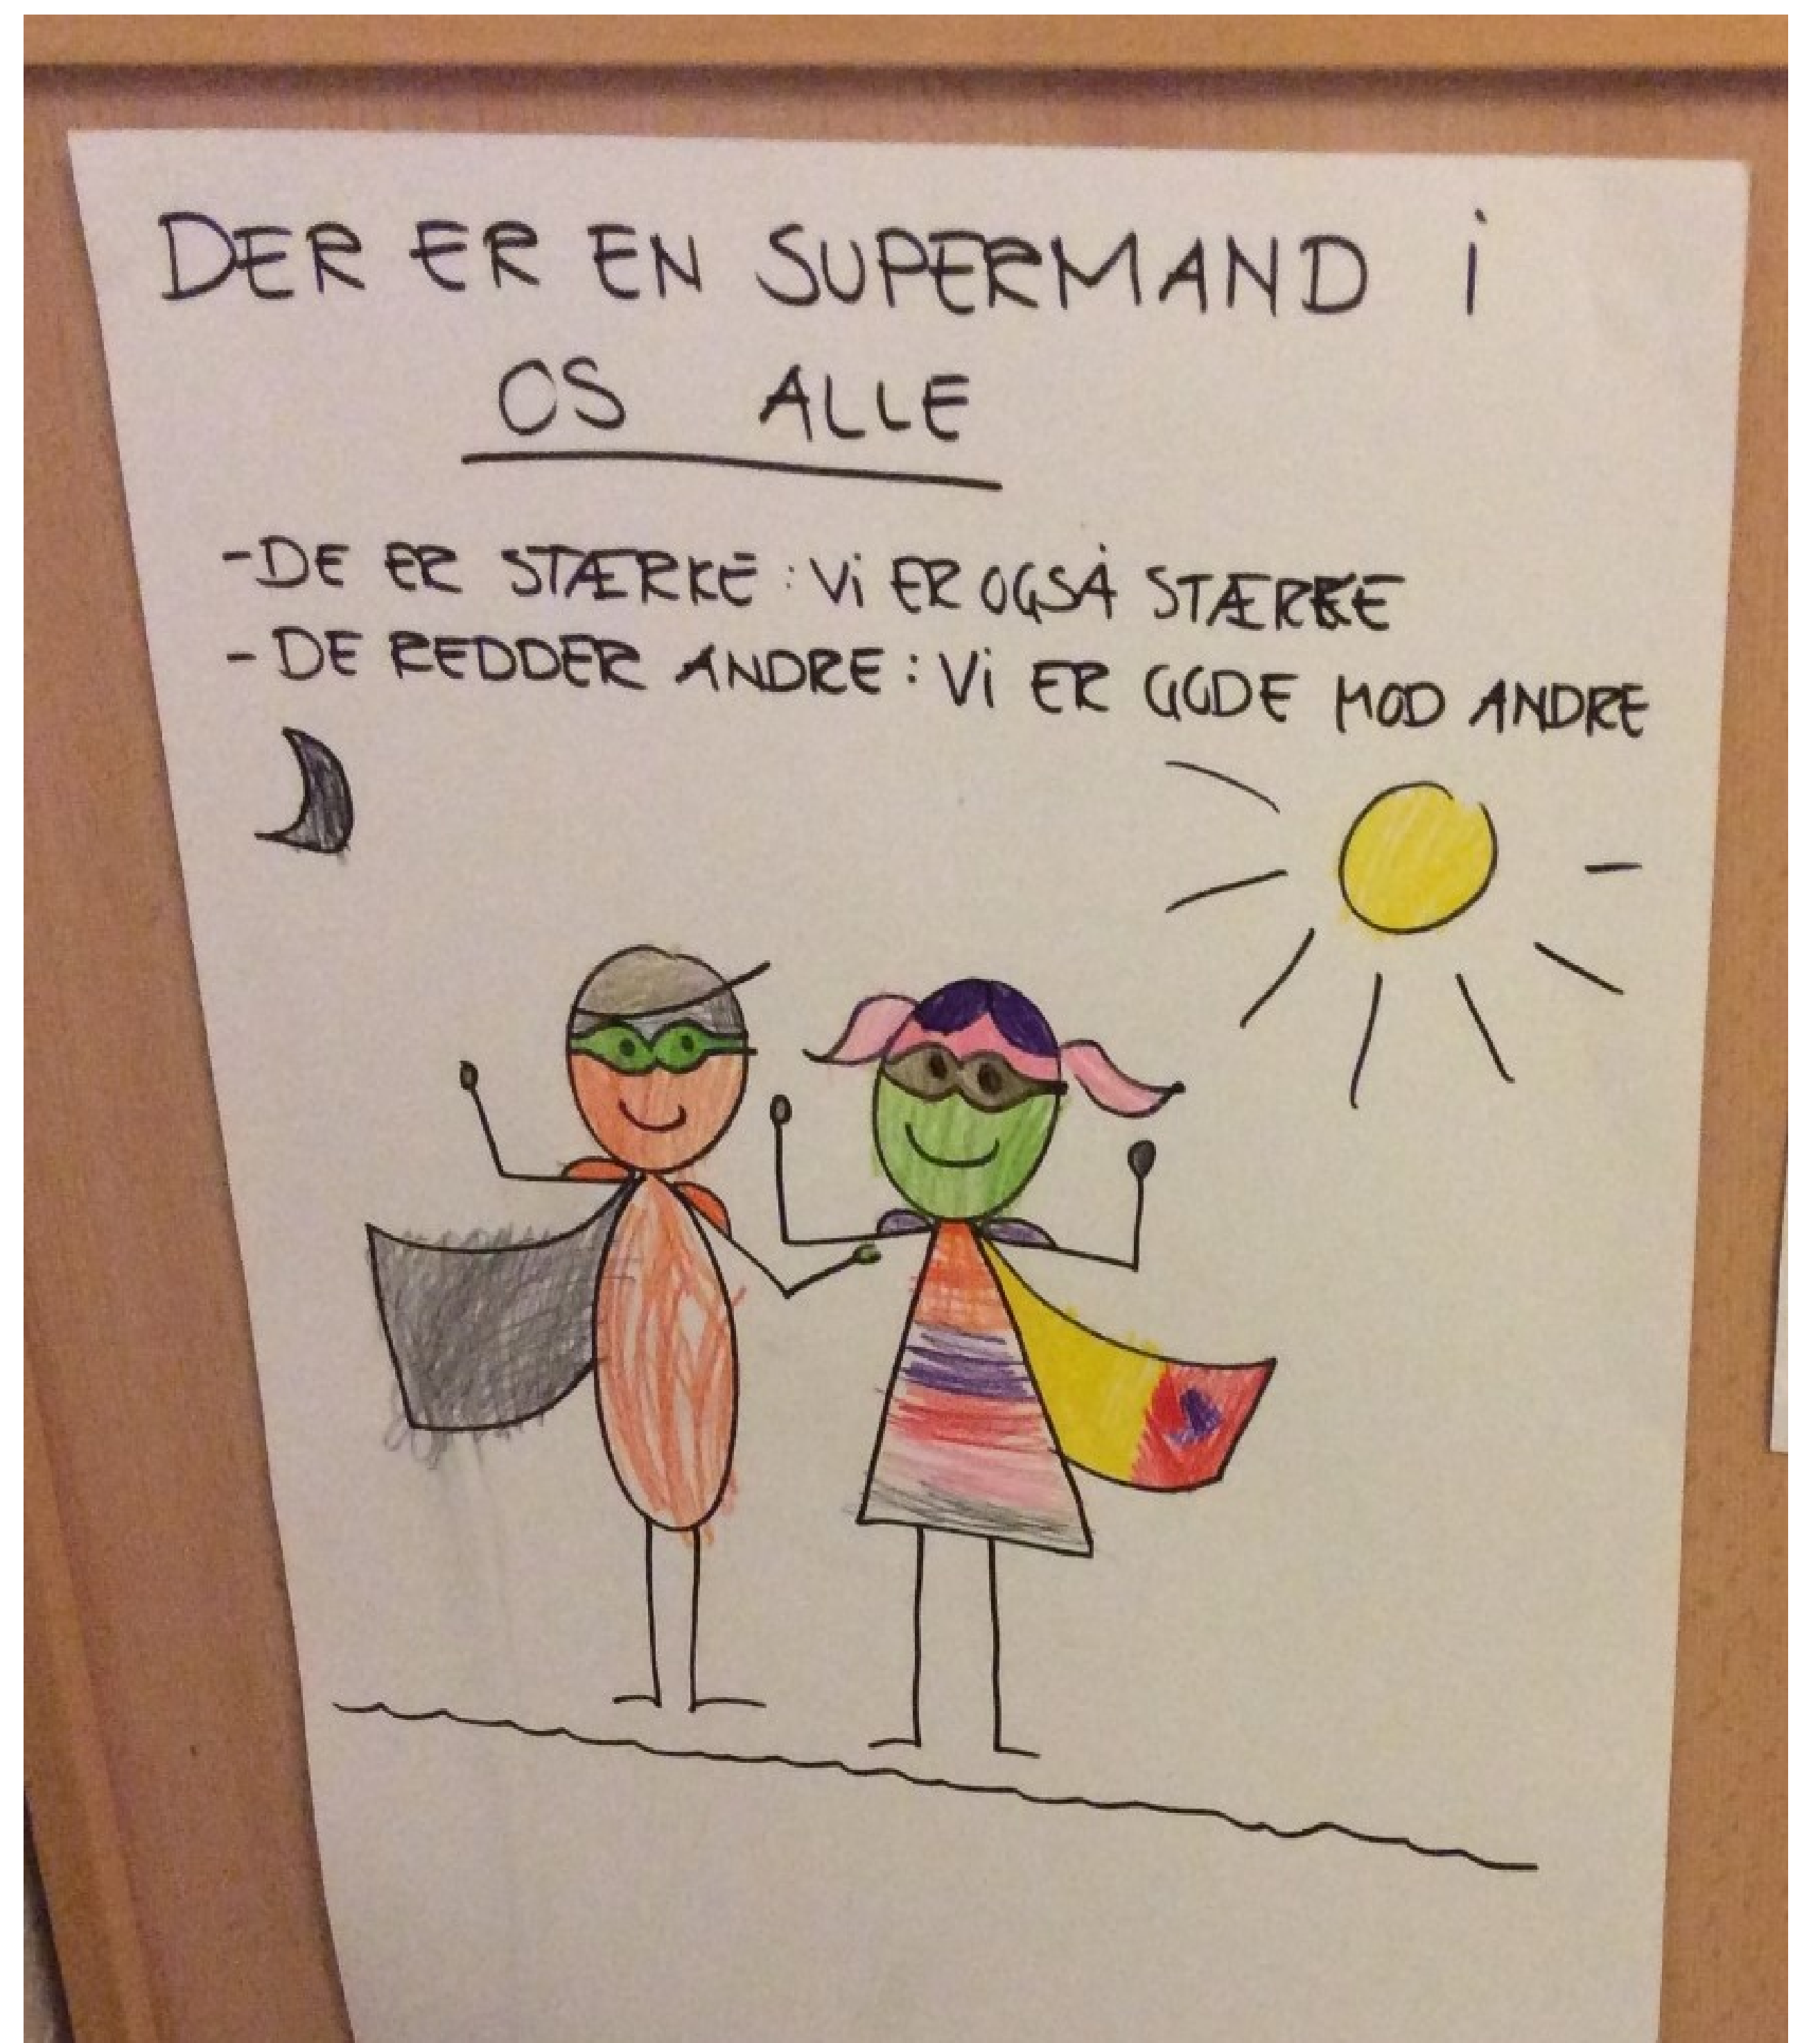 DER ER EN SUPERMAND i
OS ALLE
-DE ER STÆRKE : Vi ER OGSÅ STÆRKE
- DE REDDER ANDRE : Vi ER GODE MOD ANDRE